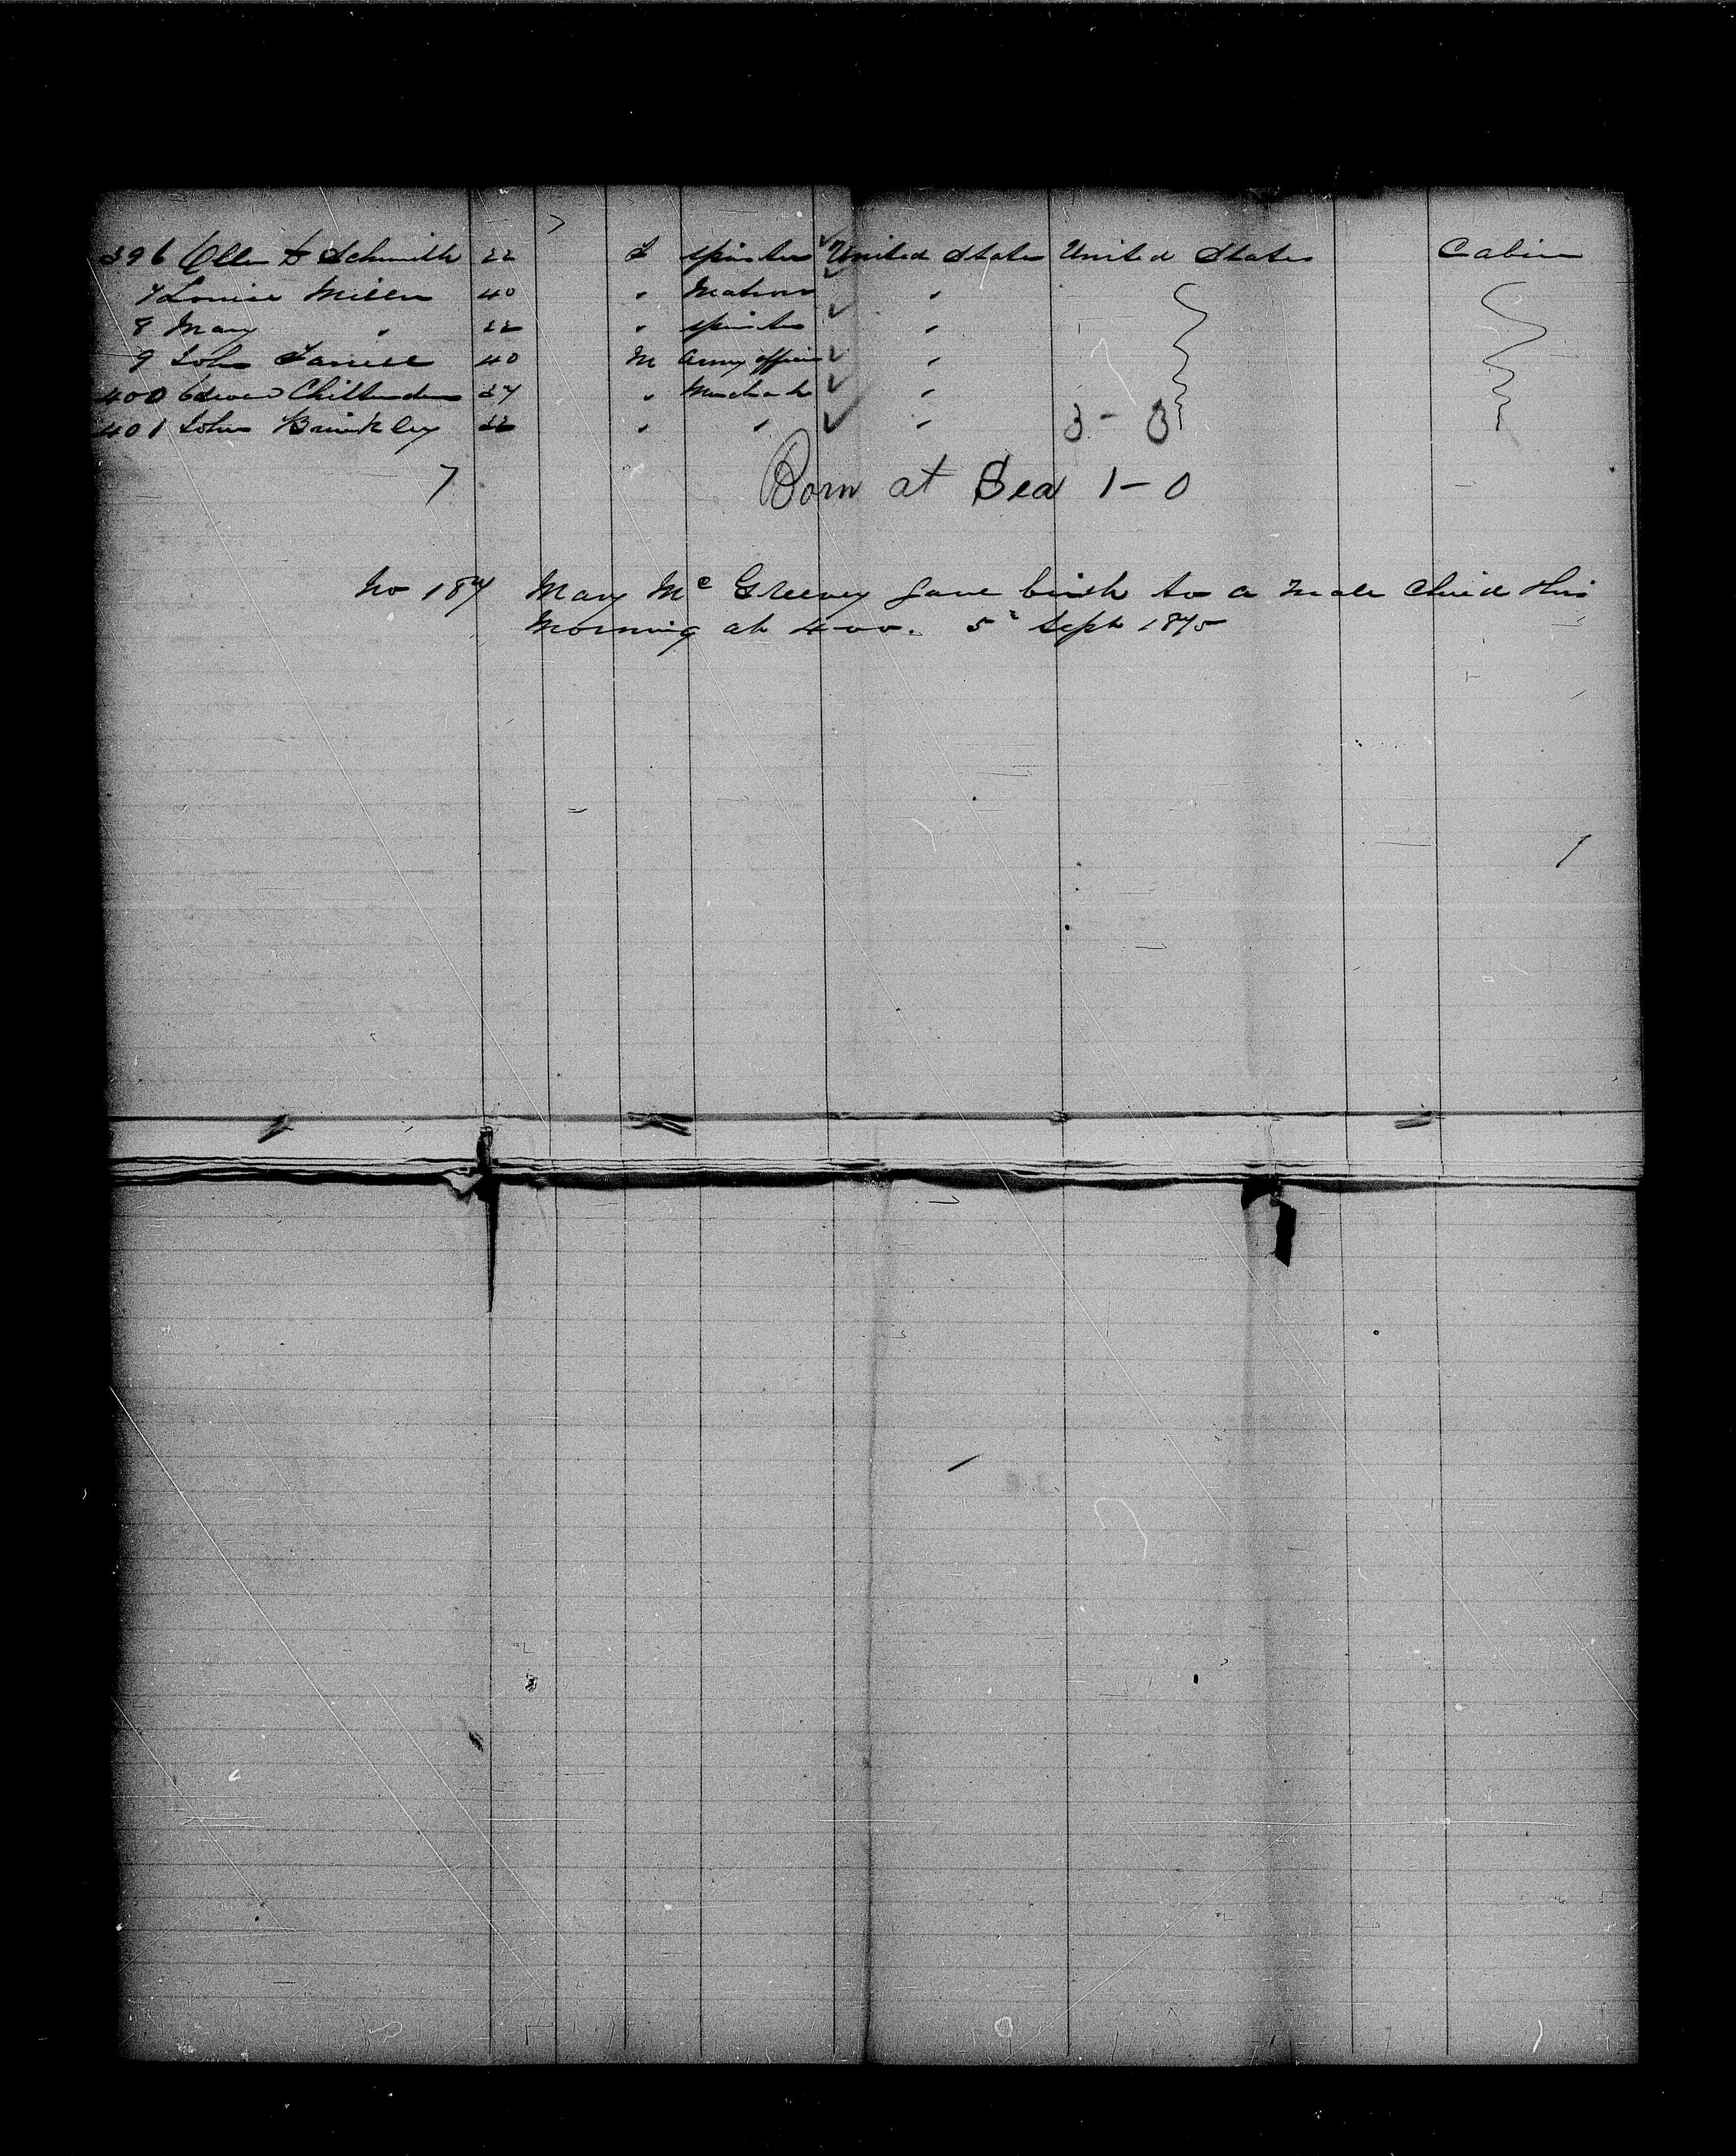 396 Ellen D Schmidt 22 F Spinster United States United States Cabin
7 Louisa Miller 40 " Matron "
8 Mary " 22 " Spinster "
9 John 40 M Army officer "
400 Edward Chittenden 27 " Merchant "
401 John Brinkley 22 " " " 3-3
7 Born at Sea 1-0
No 187 Mary McGreevy gave birth to a male child this
Morning at 4-00. 5 Sept 1875